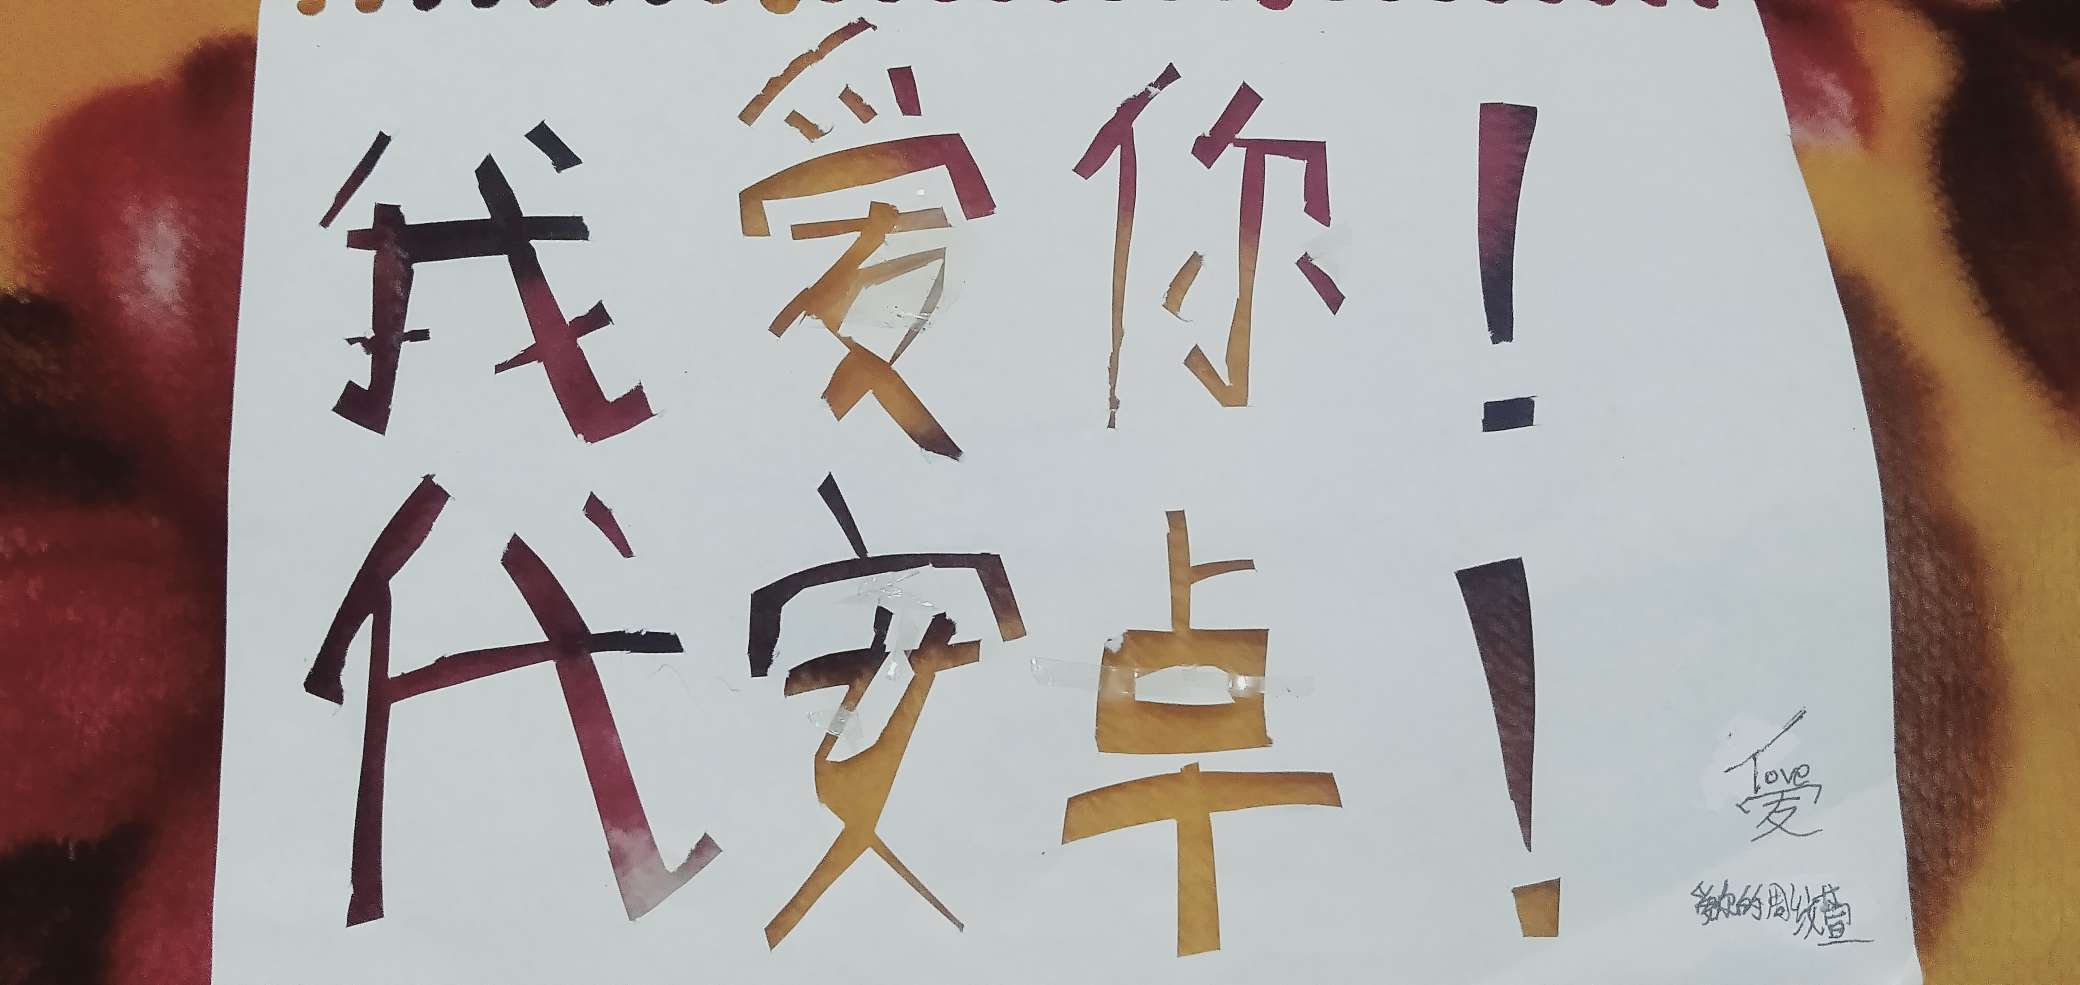 我爱你！
代安卓！
love
爱
爱你的周纹萱